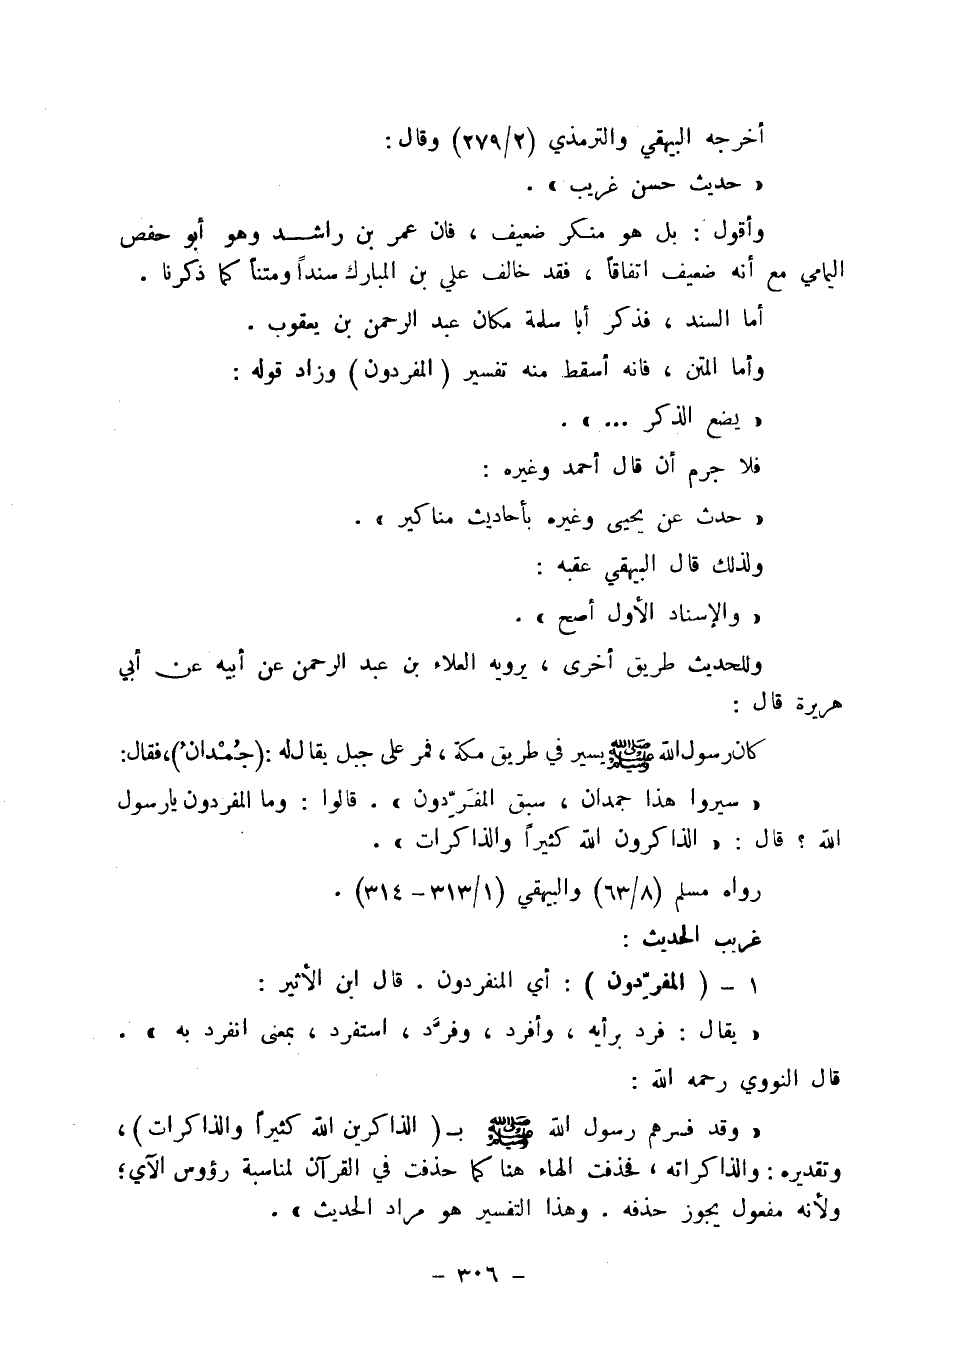 أخرجه البيهقي والترمذي (٢٧٩/٢) وقال :
« حديث حسن غريب » .
وأقول : بل هو منكر ضعيف ، فان عمر بن راشد وهو أبو حفص
اليامي مع أنه ضعيف اتفاقاً ، فقد خالف علي بن المبارك سنداً ومتناً كما ذكرنا .
أما السند ، فذكر أبا سلمة مكان عبد الرحمن بن يعقوب .
وأما المتن ، فانه أسقط منه تفسير ( المفردون ) وزاد قوله :
« يضع الذكر ... » .
فلا جرم أن قال أحمد وغيره :
« حدث عن يحيى وغيره بأحاديث مناكير » .
ولذلك قال البيهقي عقبه :
« والإسناد الأول أصح » .
وللحديث طريق أخرى ، يرويه العلاء بن عبد الرحمن عن أبيه عن أبي
هريرة قال :
كان رسول الله ﷺ يسير في طريق مكة ، فمر على جبل يقال له : (جُمْدان) ، فقال :
« سيروا هذا جمدان ، سبق المفَرِّدون » . قالوا : وما المفردون يا رسول
الله ؟ قال : « الذاكرون الله كثيراً والذاكرات » .
رواه مسلم (٦٣/٨) والبيهقي (٣١٣/١ – ٣١٤) .
غريب الحديث :
١ – ( المفرّدون ) : أي المنفردون . قال ابن الأثير :
« يقال : فرد برأيه ، وأفرد ، وفرَّد ، استفرد ، بمعنى انفرد به » .
قال النووي رحمه الله :
« وقد فسرهم رسول الله ﷺ بـ ( الذاكرين الله كثيراً والذاكرات ) ،
وتقديره : والذاكراته ، فحذفت الهاء هنا كما حذفت في القرآن لمناسبة رؤوس الآي ؛
ولأنه مفعول يجوز حذفه . وهذا التفسير هو مراد الحديث » .
– ٣٠٦ –